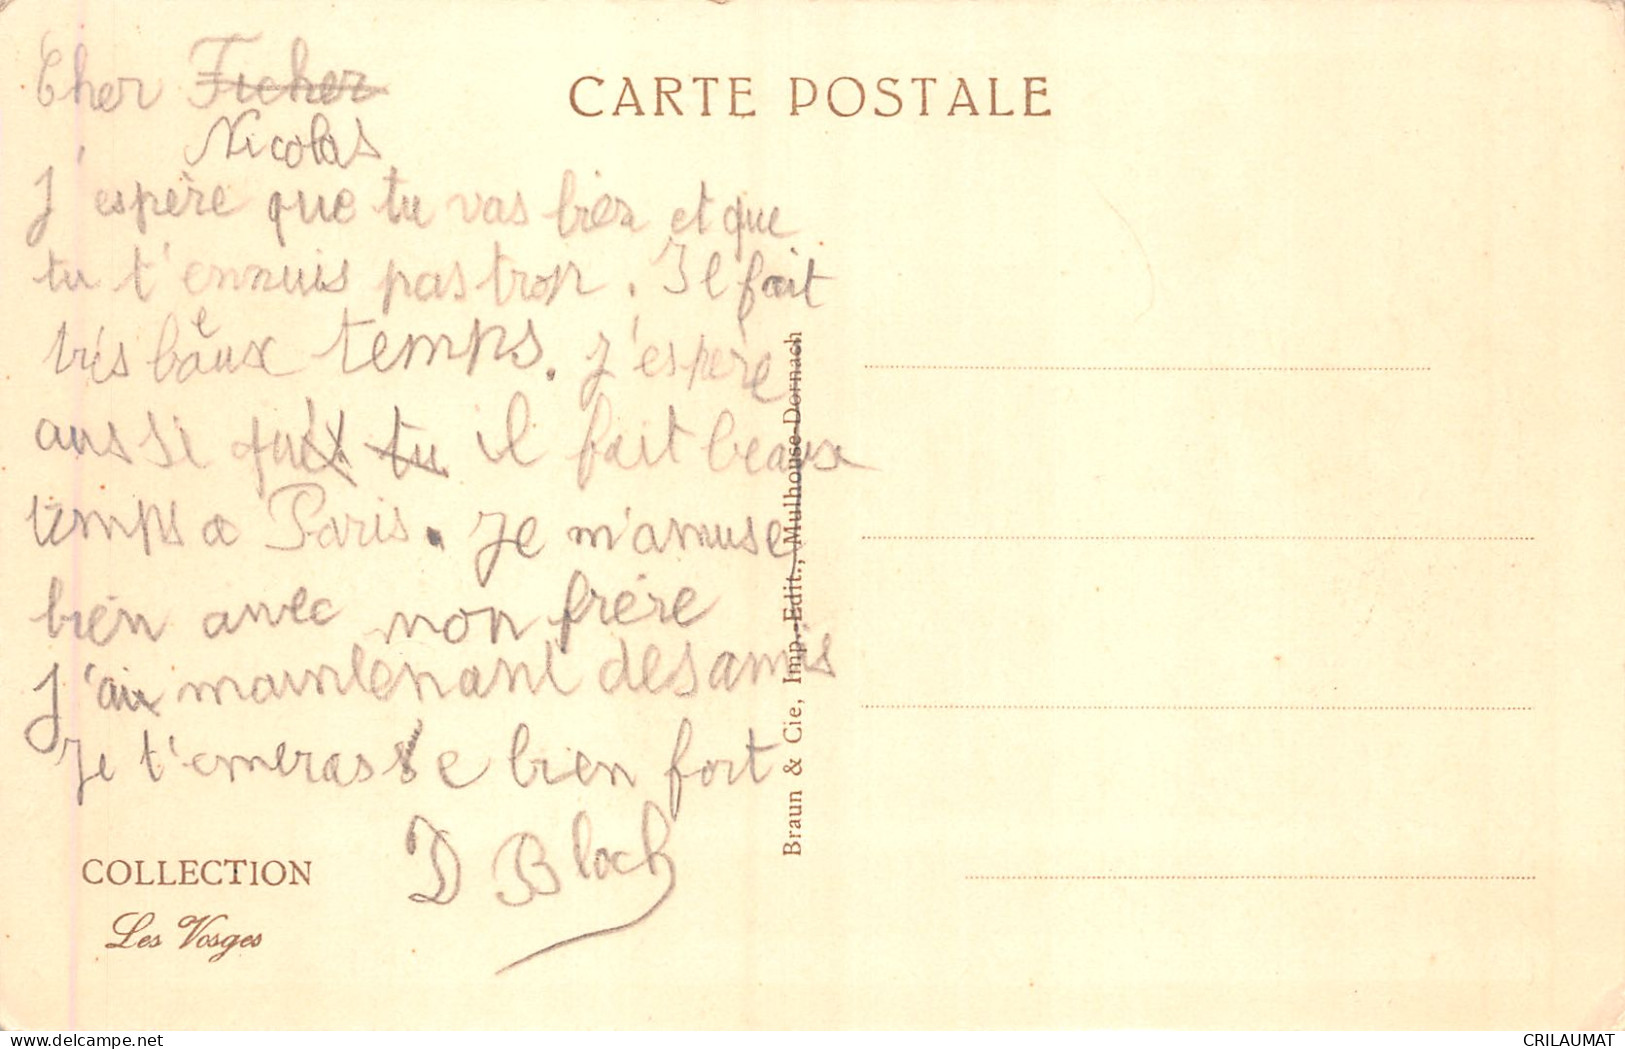 CARTE POSTALE
Cher Ficher
Nicolas
J'espère que tu vas bien et que
tu t'ennuis pas trop. Il fait
très beaux temps. J'espère
aussi qu'il fait beaux
temps a Paris. Je m'amuse
bien avec mon frère
J'ai maintenant des amis
Je t'emerasse bien fort
D Bloch
COLLECTION
Les Vosges
Braun & Cie, Imp.-Edit., Mulhouse-Dornach
delcampe.net
CRILAUMAT